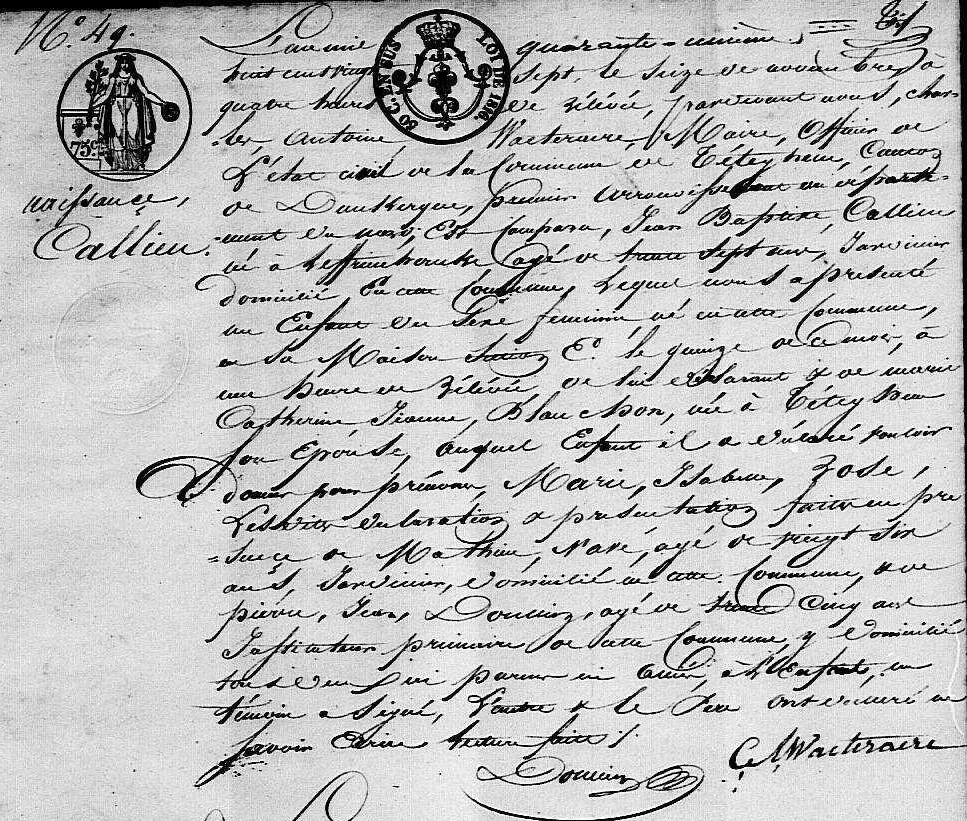 N.º 49.
L'an mil
huit cent vingt sept, le seize de novembre, à
quatre heures de rélévée, pardevant nous, Char-
-les Antoine, Wacteraire, Maire, Officier de
L'état civil de la Commune de Téteghem, Canton
de Dunkerque, premier arrondissement du départe-
ment du nord, Est Comparu, Jean Baptiste, Callieu
né à Leffrinckoucke agé de trente sept ans, Jardinier
domicilié En cette Commune, Lequel nous a présenté
un Enfant du Sexe féminin, né en cette Commune,
en Sa Maison le quinze de ce mois, à
une heure de rélévée, de lui déclarant & de marie
Catherine Jeanne, Blanchon, née à Téteghem
son Epouse, auquel Enfant il a déclaré vouloir
donner pour prénoms, Marie, Isabelle, Rose,
Lesdites déclaration & présentation faites en pré
-sence de Mathieu, Navé, agé de vingt six
ans, Jardinier, domicilié en cette Commune, & de
pierre, Jean, Doucin, agé de trente Cinq ans
Instituteur primaire de cette Commune, y domicilié
tous deux parens ni à L'Enfant, un
témoin a Signé, L'autre & le Père ont déclaré ne
savoir Ecrire lecture faite /.
Doucin
C A Wacteraire
naissance,
Callieu.
75 C.
50 C. EN SUS
LOI DE 1816